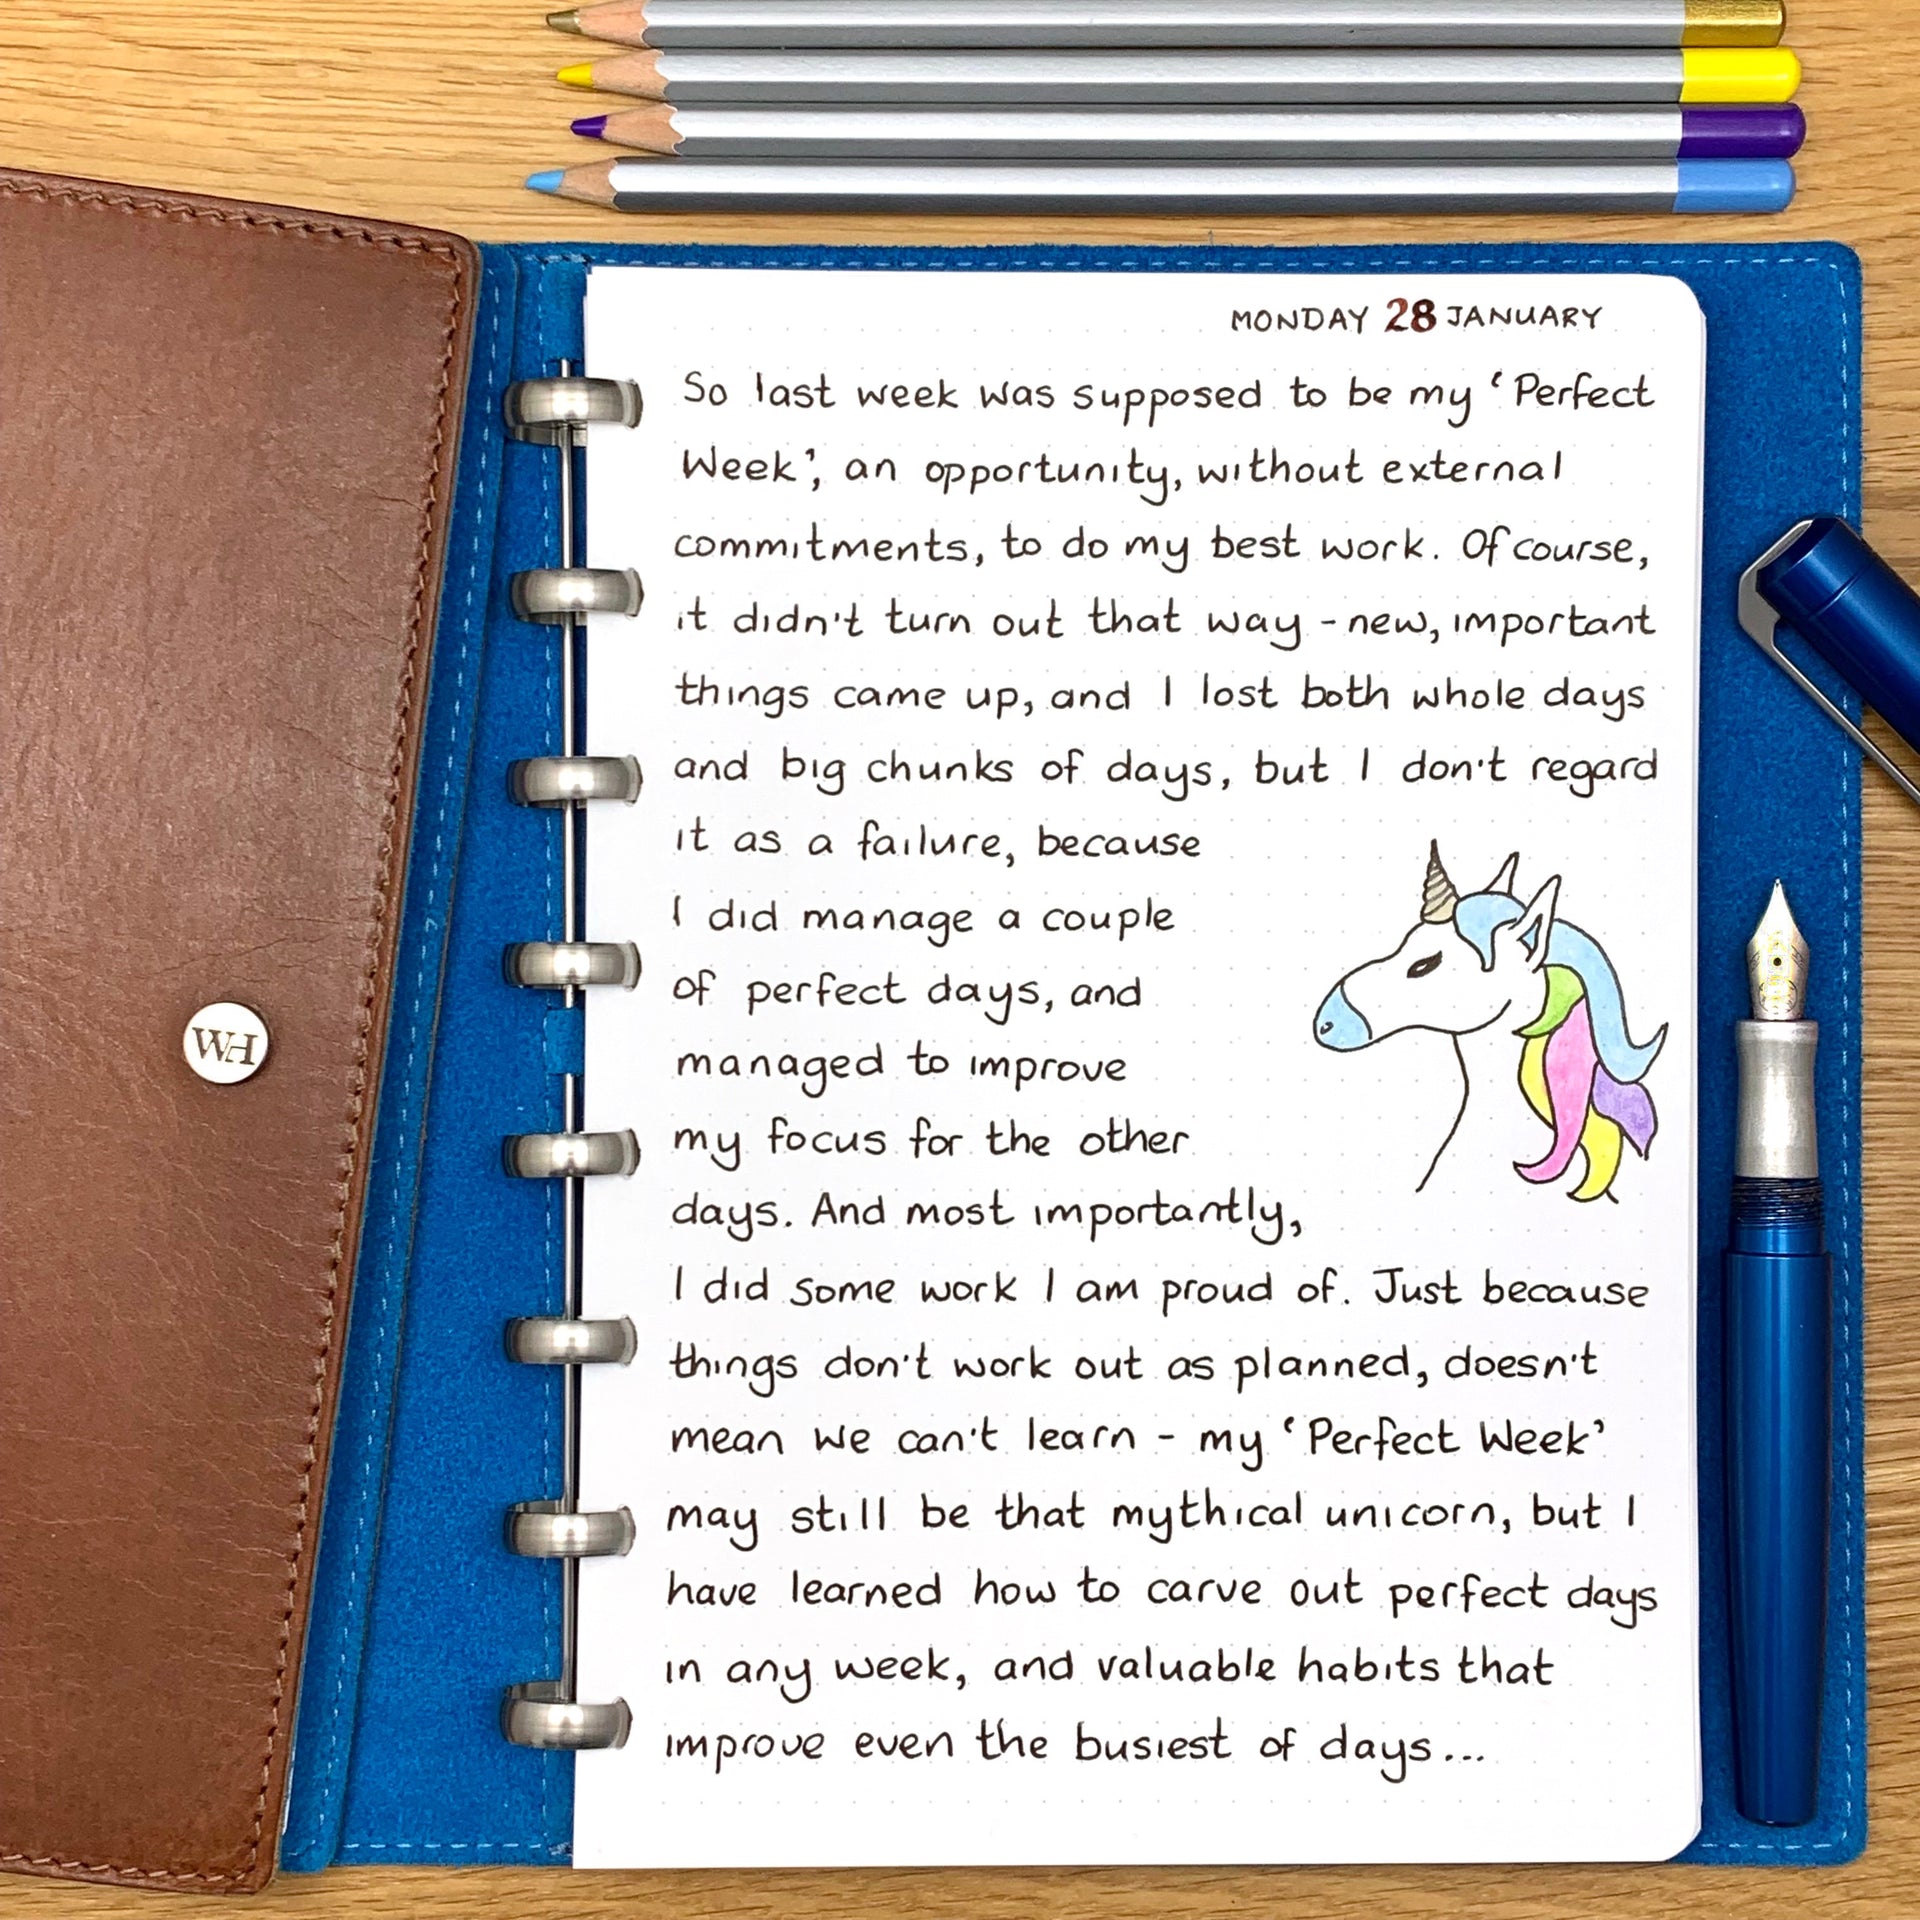 MONDAY 28 JANUARY
So last week was supposed to be my ‘Perfect
Week’, an opportunity, without external
commitments, to do my best work. Of course,
it didn't turn out that way - new, important
things came up, and I lost both whole days
and big chunks of days, but I don't regard
it as a failure, because
I did manage a couple
of perfect days, and
managed to improve
my focus for the other
days. And most importantly,
I did some work I am proud of. Just because
things don't work out as planned, doesn't
mean we can't learn - my ‘Perfect Week’
may still be that mythical unicorn, but I
have learned how to carve out perfect days
in any week, and valuable habits that
improve even the busiest of days...
WH